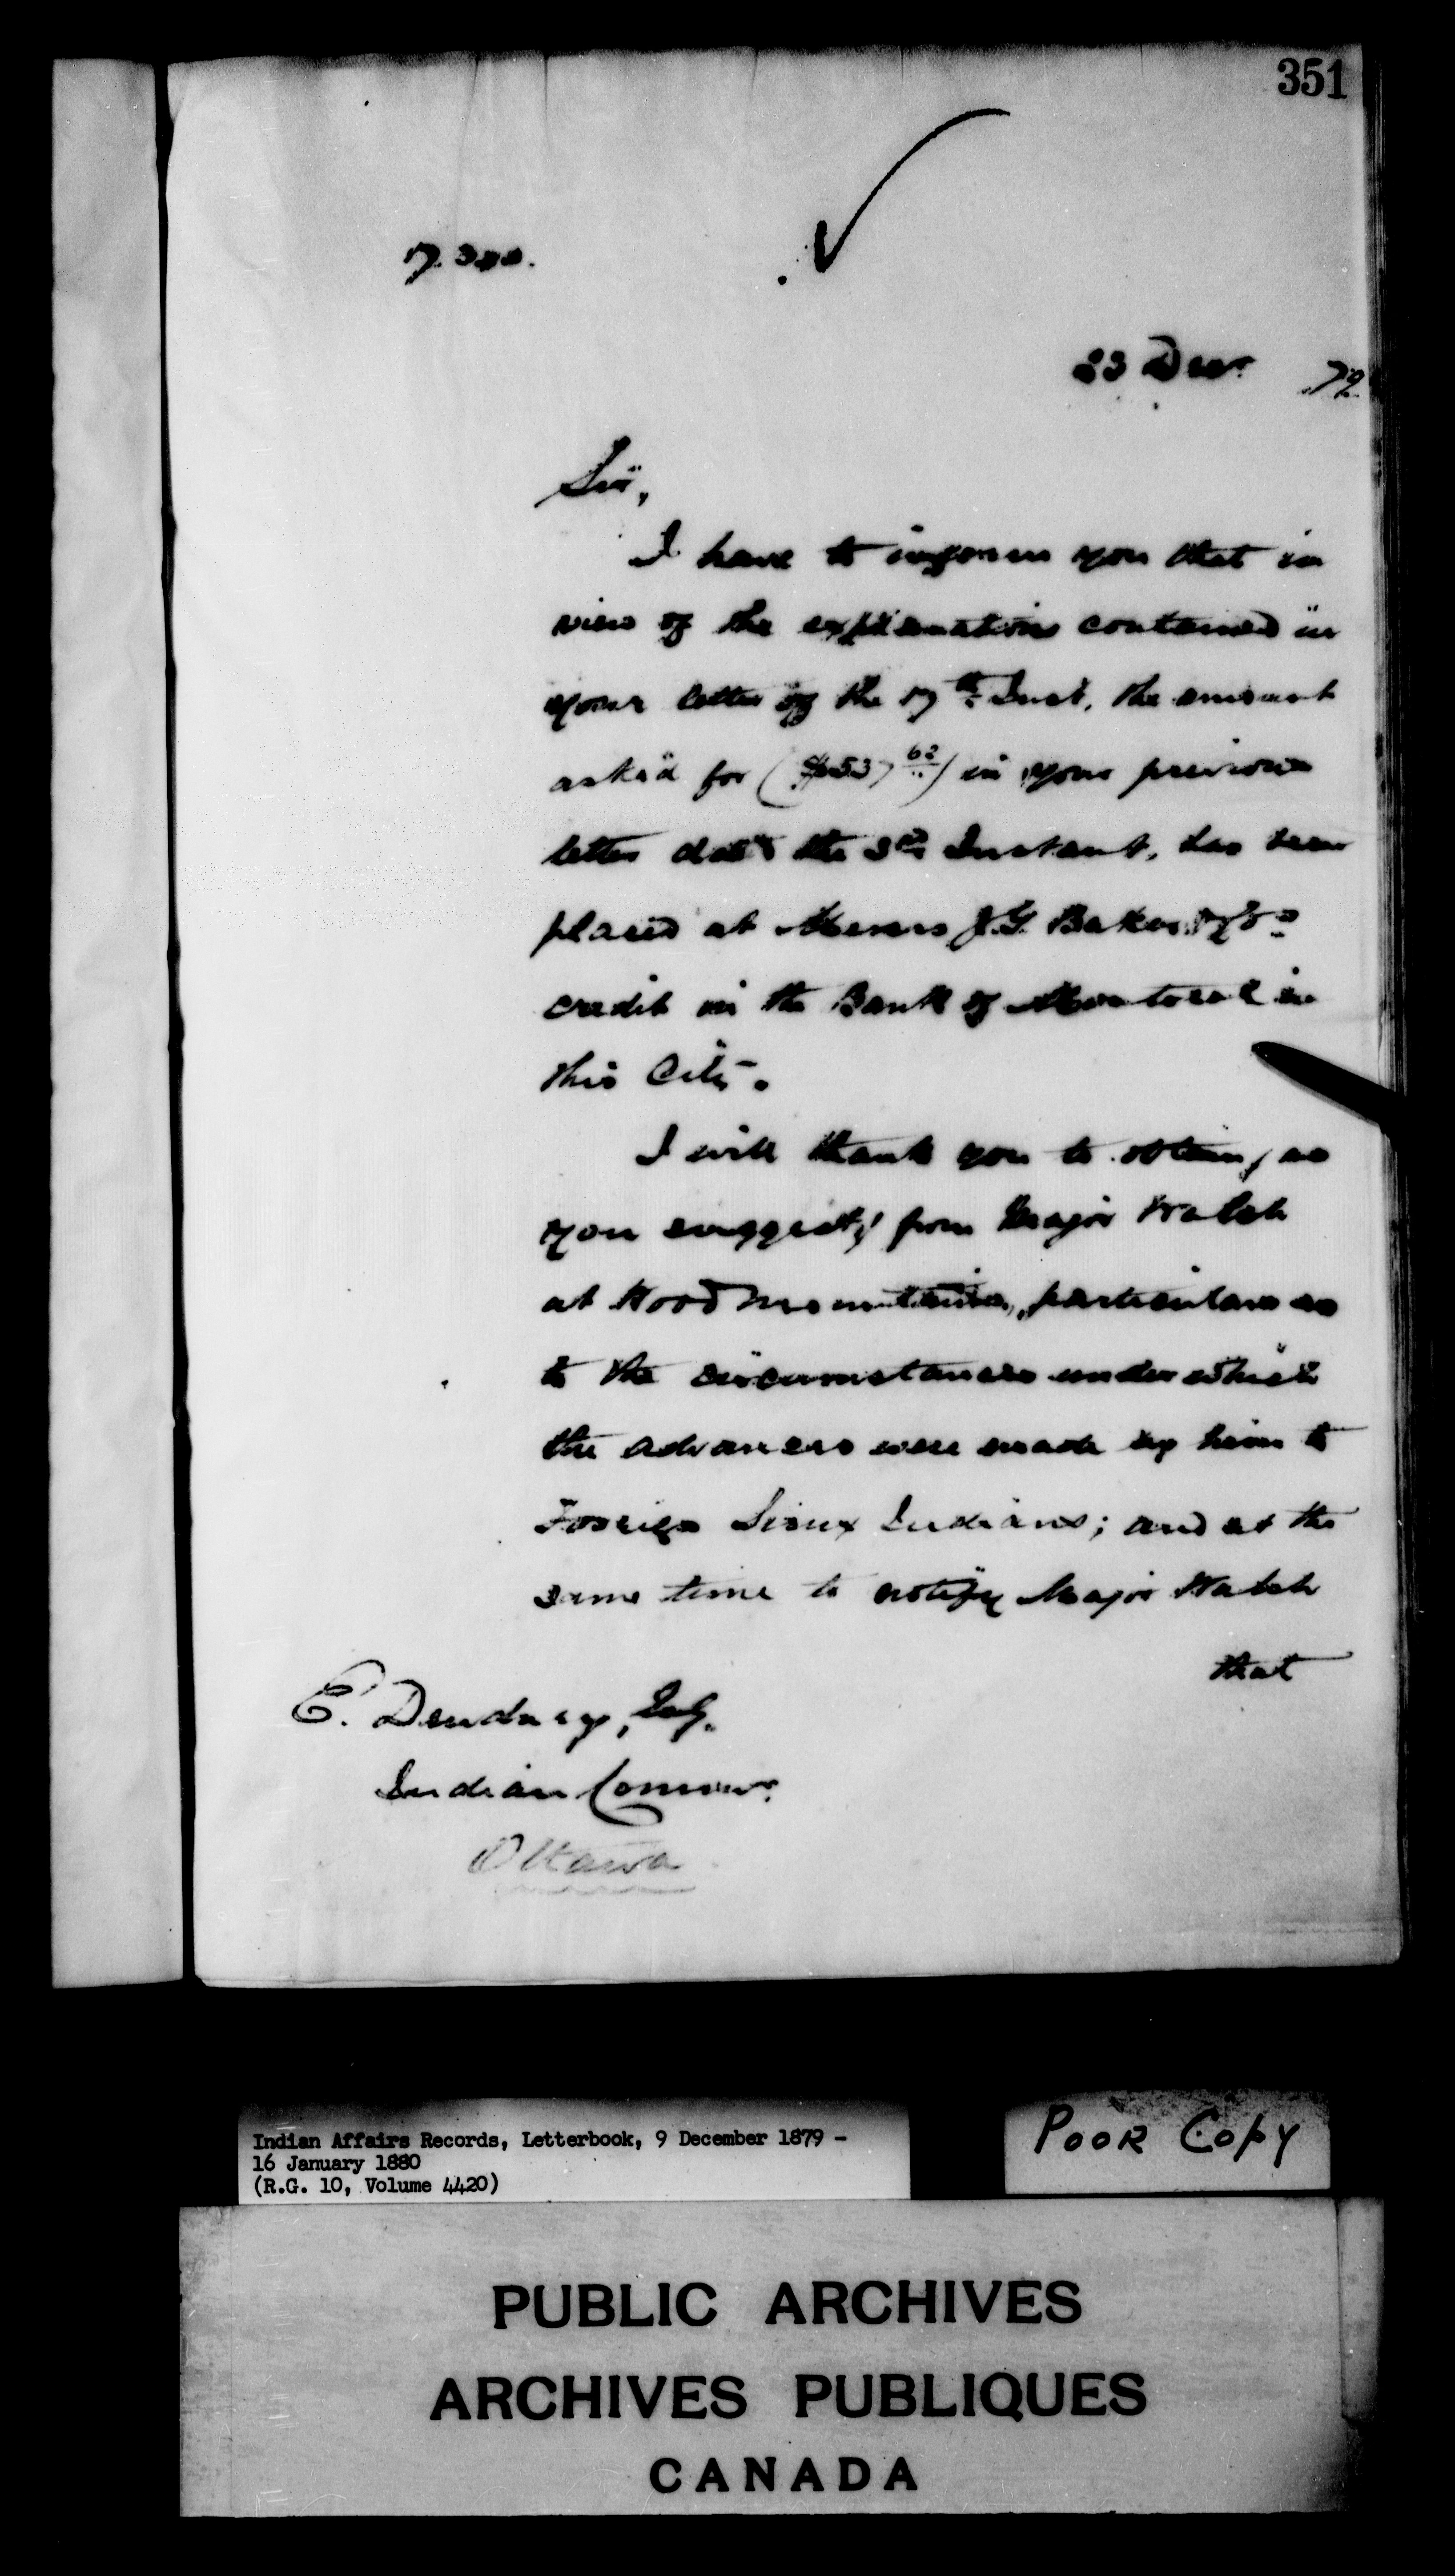 351
23 Decr 79
Sir,
I have to inform you that in
view of the explanations contained in
your letter of the 17th Inst, the amount
asked for ( in your previous
letter dated the 3rd Instant, has been
placed at Messrs J.G. Baker & Co
credit in the Bank of Montreal in
this City.
I will thank you to obtain, as
you suggest, from Major Walsh
at Wood Mountain, particulars as
to the circumstances under which
the advances were made by him to
Foreign Sioux Indians; and at the
same time to notify Major Walsh
that
E. Dewdney, Esq.
Indian Commr.
Ottawa
Indian Affairs Records, Letterbook, 9 December 1879 -
16 January 1880
(R.G. 10, Volume 4420)
POOR COPY
PUBLIC ARCHIVES
ARCHIVES PUBLIQUES
CANADA